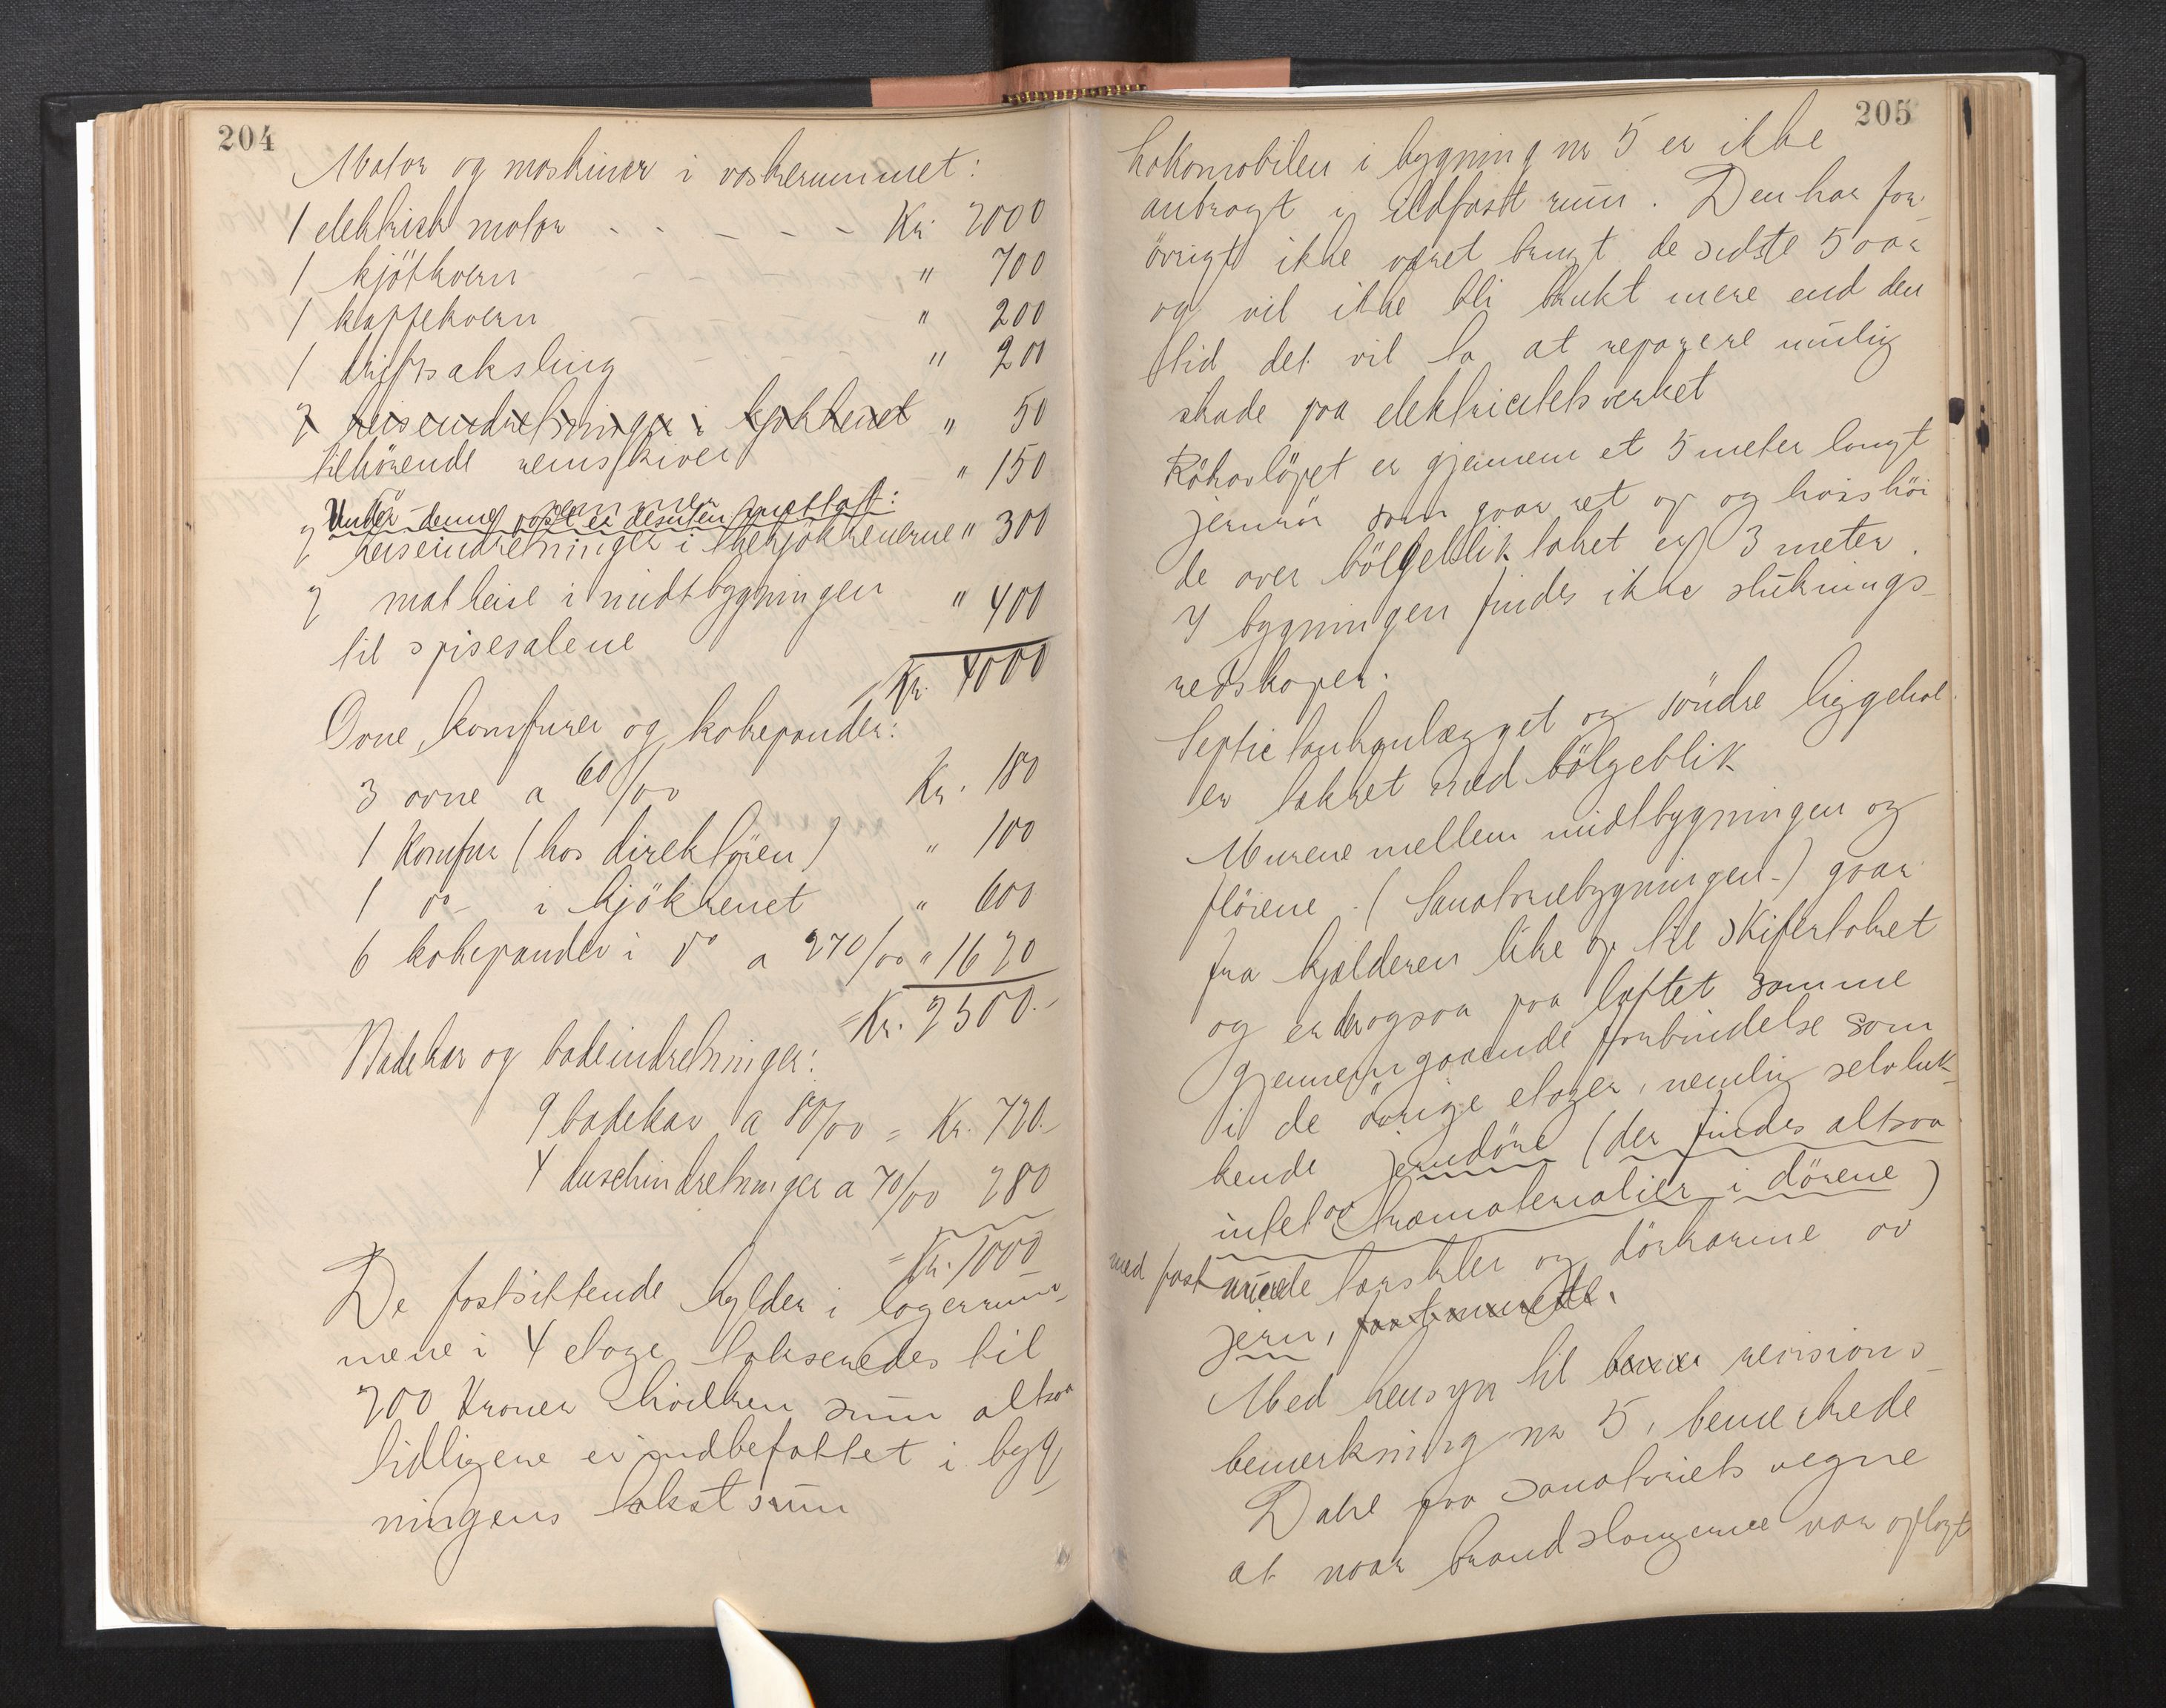 204
Motor og maskiner i vaskerummet:
1 elektrisk motor - - - - - - Kr. 2000
1 kjötkvern " 700
1 kaffekvern " 200
1 driftsaksling " 200
2 heiseindretninger i kjøkkenet " 50
tilhörende remskiver " 150
Under denne post er desuten mottat:
2 heiseindretninger i thekjökkenerne " 300
2 matheise i midtbygningen " 400
til spisesalene
Kr. 4000
Ovne, komfurer og kokepander:
3 ovne a 60/00 Kr. 180
1 Komfur (hos direktören) " 100
1 do - i kjökkenet " 600
6 kokepander i do a 270/00 " 1620
= Kr. 2500.-
Badekar og badeindretninger:
9 badekar a 80/00 = Kr. 720.-
4 duschindretninger a 70/00 280
= Kr. 1000
De fastsittende hylder i lagerrum-
mene i 4 etage takseredes til
200 Kroner hvilken sum altsaa
tidligere er indbefattet i byg-
ningens takstsum
205
Lokomobilen i bygning nr 5 er ikke
anbragt i ildfast rum. Den har for-
övrigt ikke været brugt de sidste 5 aar
og vil ikke bli brukt mere end den
tid det vil ta at reparere mulig
skade paa elektricitetsverket
Rökavlöpet er gjennem et 5 meter langt
jernrör som gaar ret op og hvis höi
de over bölgeblik taket er 3 meter.
I bygningen findes ikke sluknings-
redskaper.
Septictankanlægget og söndre liggehal
er tækket med bölgeblik
Murene mellem midtbygningen og
flöiene (Sanatoriebygningen-) gaar
fra kjælderen like op til skifertaket
og er der ogsaa paa loftet samme
gjennemgaaende forbindelse som
i de övrige etager, nemlig selvluk-
kende jerndöre (der findes altsaa
intet av træmaterialier i dörene)
med fast murede tærskler og dörkarme av
jern, fastmurede.
Med hensyn til revisions-
bemerkning nr 5, bemerkede
Dahl paa sanatoriets vegne
at naar brandslangerne var oplagt